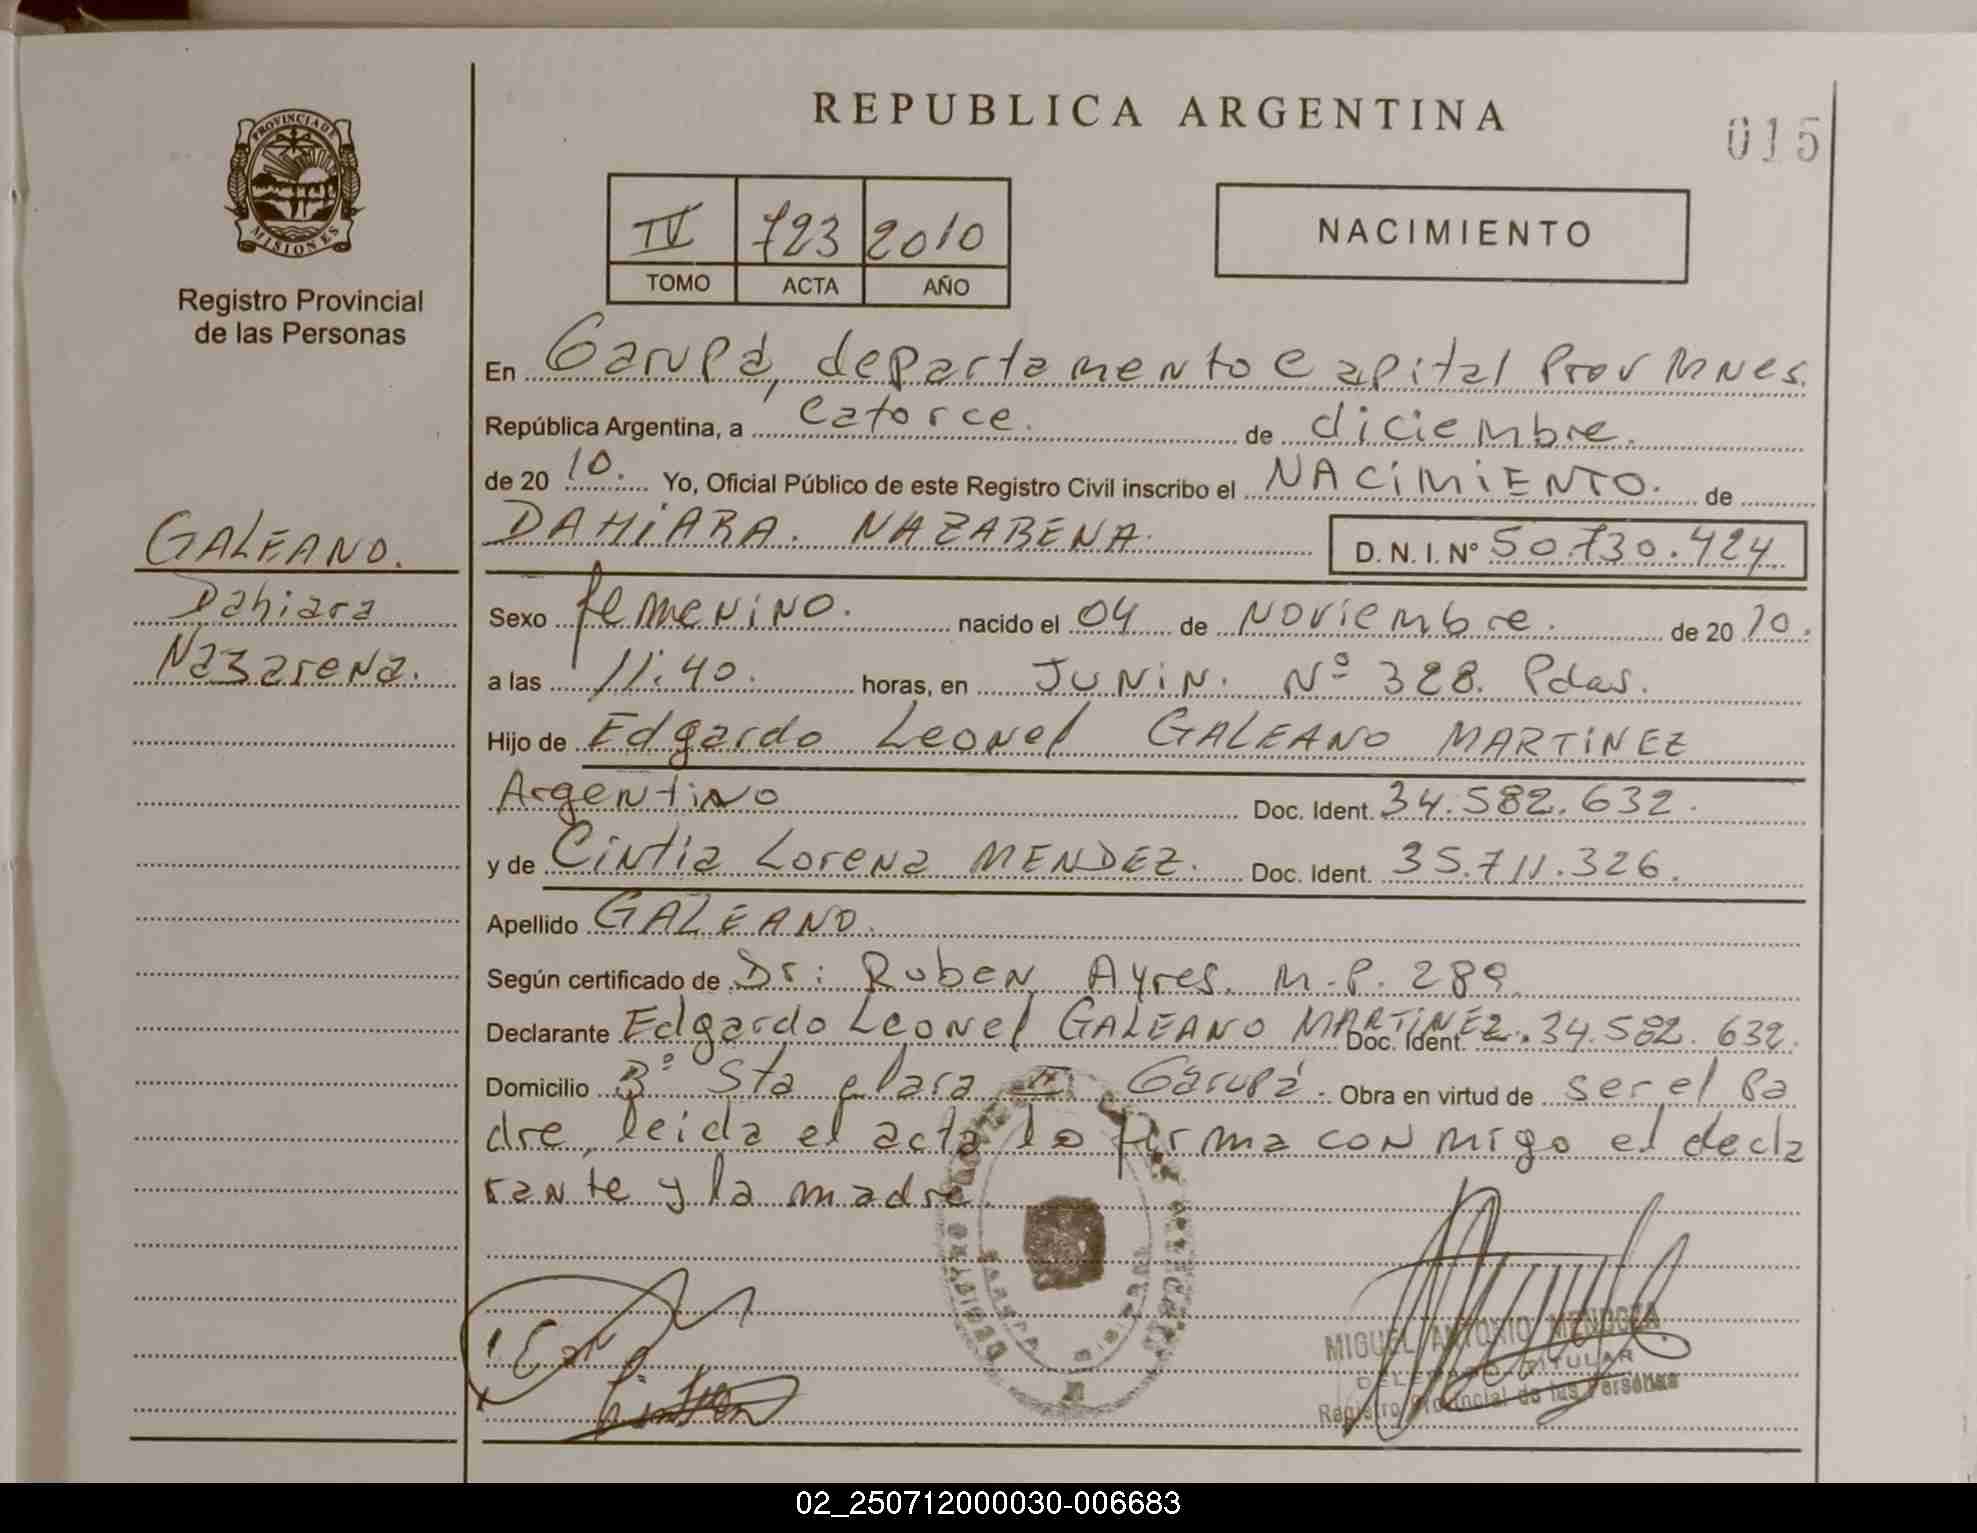 REPUBLICA ARGENTINA
015
PROVINCIA DE
MISIONES
Registro Provincial
de las Personas
IV 723 2010
TOMO ACTA AÑO
NACIMIENTO
En Garupá, departamento Capital Prov Mnes.
República Argentina, a catorce. de diciembre.
de 20 10. Yo, Oficial Público de este Registro Civil inscribo el NACIMIENTO. de
DAHIARA. NAZARENA. D. N. I. Nº 50.730.424
GALEANO.
Dahiara
Nazarena.
Sexo femenino. nacido el 04 de Noviembre. de 20 10.
a las 11:40. horas, en JUNIN. Nº 328. Pdas.
Hijo de Edgardo Leonel GALEANO MARTINEZ
Argentino Doc. Ident. 34.582.632.
y de Cintia Lorena MENDEZ. Doc. Ident. 35.711.326.
Apellido GALEANO.
Según certificado de Dr: Ruben Ayres. M.P. 289.
Declarante Edgardo Leonel GALEANO MARTINEZ. Doc. Ident. 34.582.632.
Domicilio Bº Sta Clara Garupá. Obra en virtud de ser el Pa
dre, leida el acta lo firma con migo el decla
rante y la madre.
MIGUEL ANTONIO MENDOZA
DELEGADO TITULAR
Registro Provincial de las Personas
02_250712000030-006683